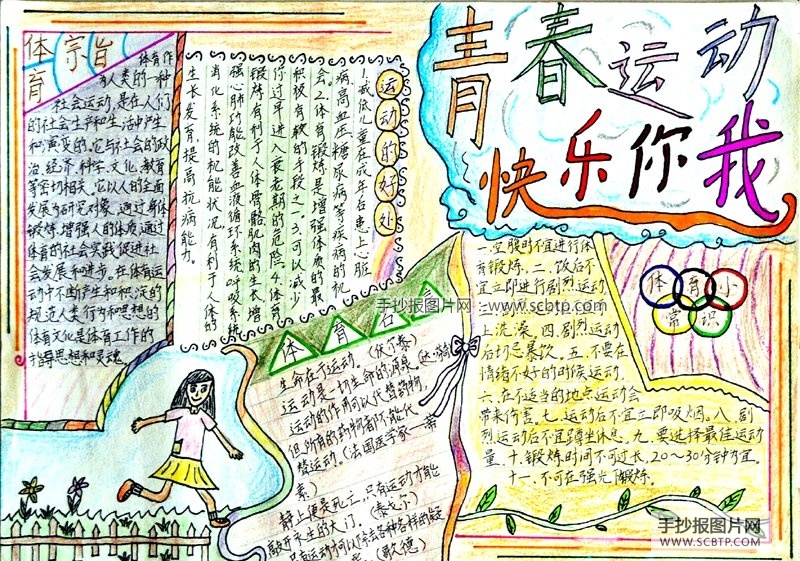 青春运动
快乐你我
体育宗旨
体育作
为人类的一种
社会运动,是在人们
的社会生产和生活中产生
和演变的。它与社会的政
治、经济、科学、文化、教育
等密切相关。它以人的全面
发展为研究对象,通过身体
锻炼,增强人的体质,通过
体育的社会实践促进社
会发展和进步。在体育运
动中不断产生和积淀的
规范人类行为和思想的
体育文化是体育工作的
指导思想和灵魂。
运动的好处
1.减低儿童在成年后患上心脏
病,高血压,糖尿病等疾病的机
会。2.体育锻炼是增强体质的最
积极有效的手段之一。3.可以减少
你过早进入衰老期的危险。4.体育
锻炼有利于人体骨骼肌肉的生长,增
强心肺功能,改善血液循环系统,呼吸系统,
消化系统的机能状况,有利于人体的
生长发育,提高抗病能力。
体育名
生命在于运动。(伏尔泰)
运动是一切生命的源泉。(达·芬奇)
运动的作用可以代替药物,
但所有的药物都不能代
替运动。(法国医学家—蒂
素)
静止便是死亡,只有运动才能
敲开永生的大门。(泰戈尔)
只有运动才可以除去各种各样的疑
虑。(歌德)
体育小
常识
一.空腹时不宜进行体
育锻炼。二.饭后不
宜立即进行剧烈运动
上洗澡。四.剧烈运动
后切忌暴饮。五.不要在
情绪不好的时候运动。
六.在不适当的地点运动会
带来伤害。七.运动后不宜立即吸烟。八.剧
烈运动后不宜蹲坐休息。九.要选择最佳运动
量。十.锻炼时间不可过长,20~30分钟为宜。
十一.不可在强光下锻炼。
手抄报图片网 www.scbtp.com
手抄报图片网
WWW.SCBTP.COM